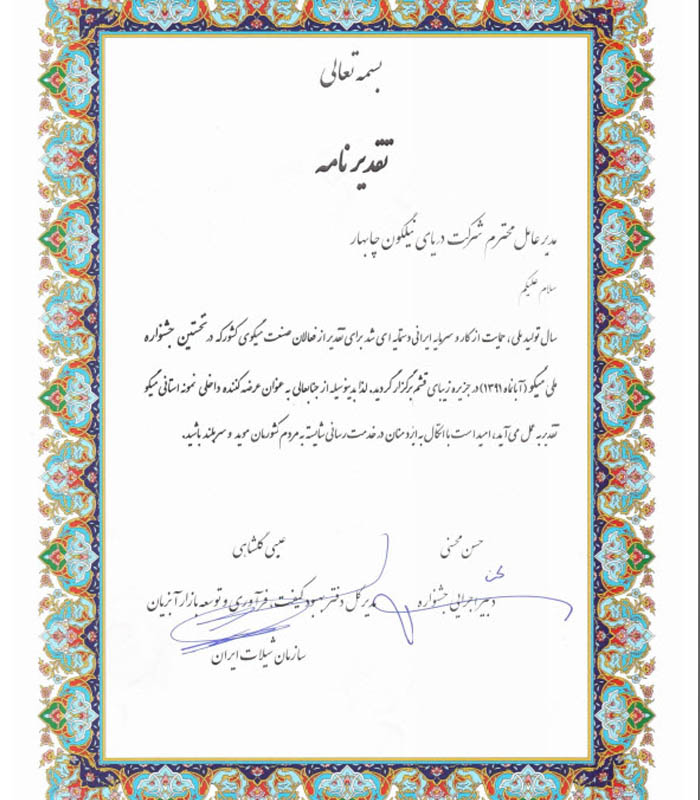 بسمه تعالی
تقدیرنامه
مدیرعامل محترم شرکت دریای نیلگون چابهار
سلام علیکم
سال تولید ملی، حمایت از کار و سرمایه ایرانی دستمایه ای شد برای تقدیر از فعالان صنعت میگوی کشور که در نخستین جشنواره
ملی میگو (آبانماه ۱۳۹۱) در جزیره زیبای قشم برگزار گردید. لذا بدینوسیله از جنابعالی به عنوان عرضه کننده داخلی نمونه استانی میگو
تقدیر به عمل می آید، امید است با اتکال به ایزد منان در خدمت رسانی شایسته به مردم کشورمان موید و سربلند باشید.
حسن محسنی
عیسی گلشاهی
دبیر اجرایی جشنواره
مدیرکل دفتر بهبود کیفیت، فرآوری و توسعه بازار آبزیان
سازمان شیلات ایران